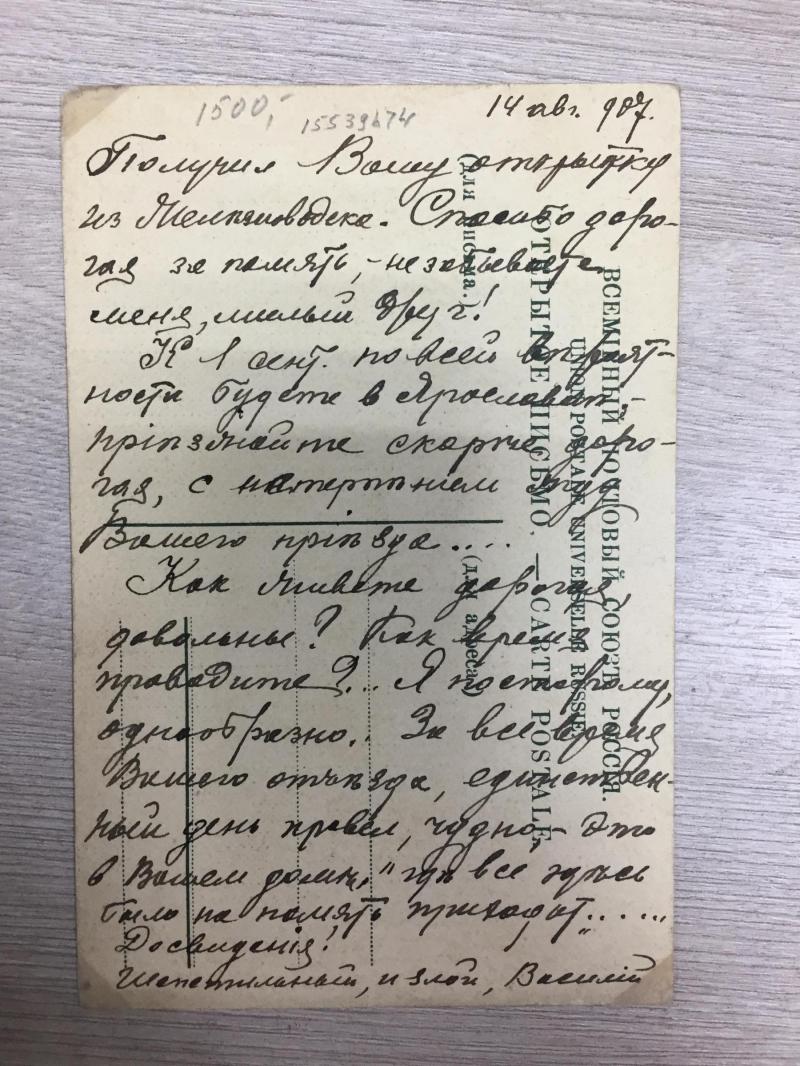 1500,-
15539474
14 авг. 907.
Получил Вашу открытку
из Железноводска. Спасибо доро-
гая за память, - не забываете
меня, милый друг!
К 1 сент. по всей вѣроят-
ности будете в Ярославлѣ, -
пріѣзжайте скорѣе доро-
гая, с нетерпѣнием жду
Вашего пріѣзда....
Как живете дорогая,
довольны? Как время
проводите?... Я по старому,
однообразно.. За все время
Вашего отъѣзда, единствен-
ный день провел, чудно, - это
в Вашем домѣ, "гдѣ все здѣсь
было на память приходит"......
Досвиданія!
и злой, Василій
ВСЕМІРНЫЙ ПОЧТОВЫЙ СОЮЗЪ. РОССІЯ.
UNION POSTALE UNIVERSELLE RUSSIE
ОТКРЫТОЕ ПИСЬМО. — CARTE POSTALE.
(для письма.)
(для адреса)